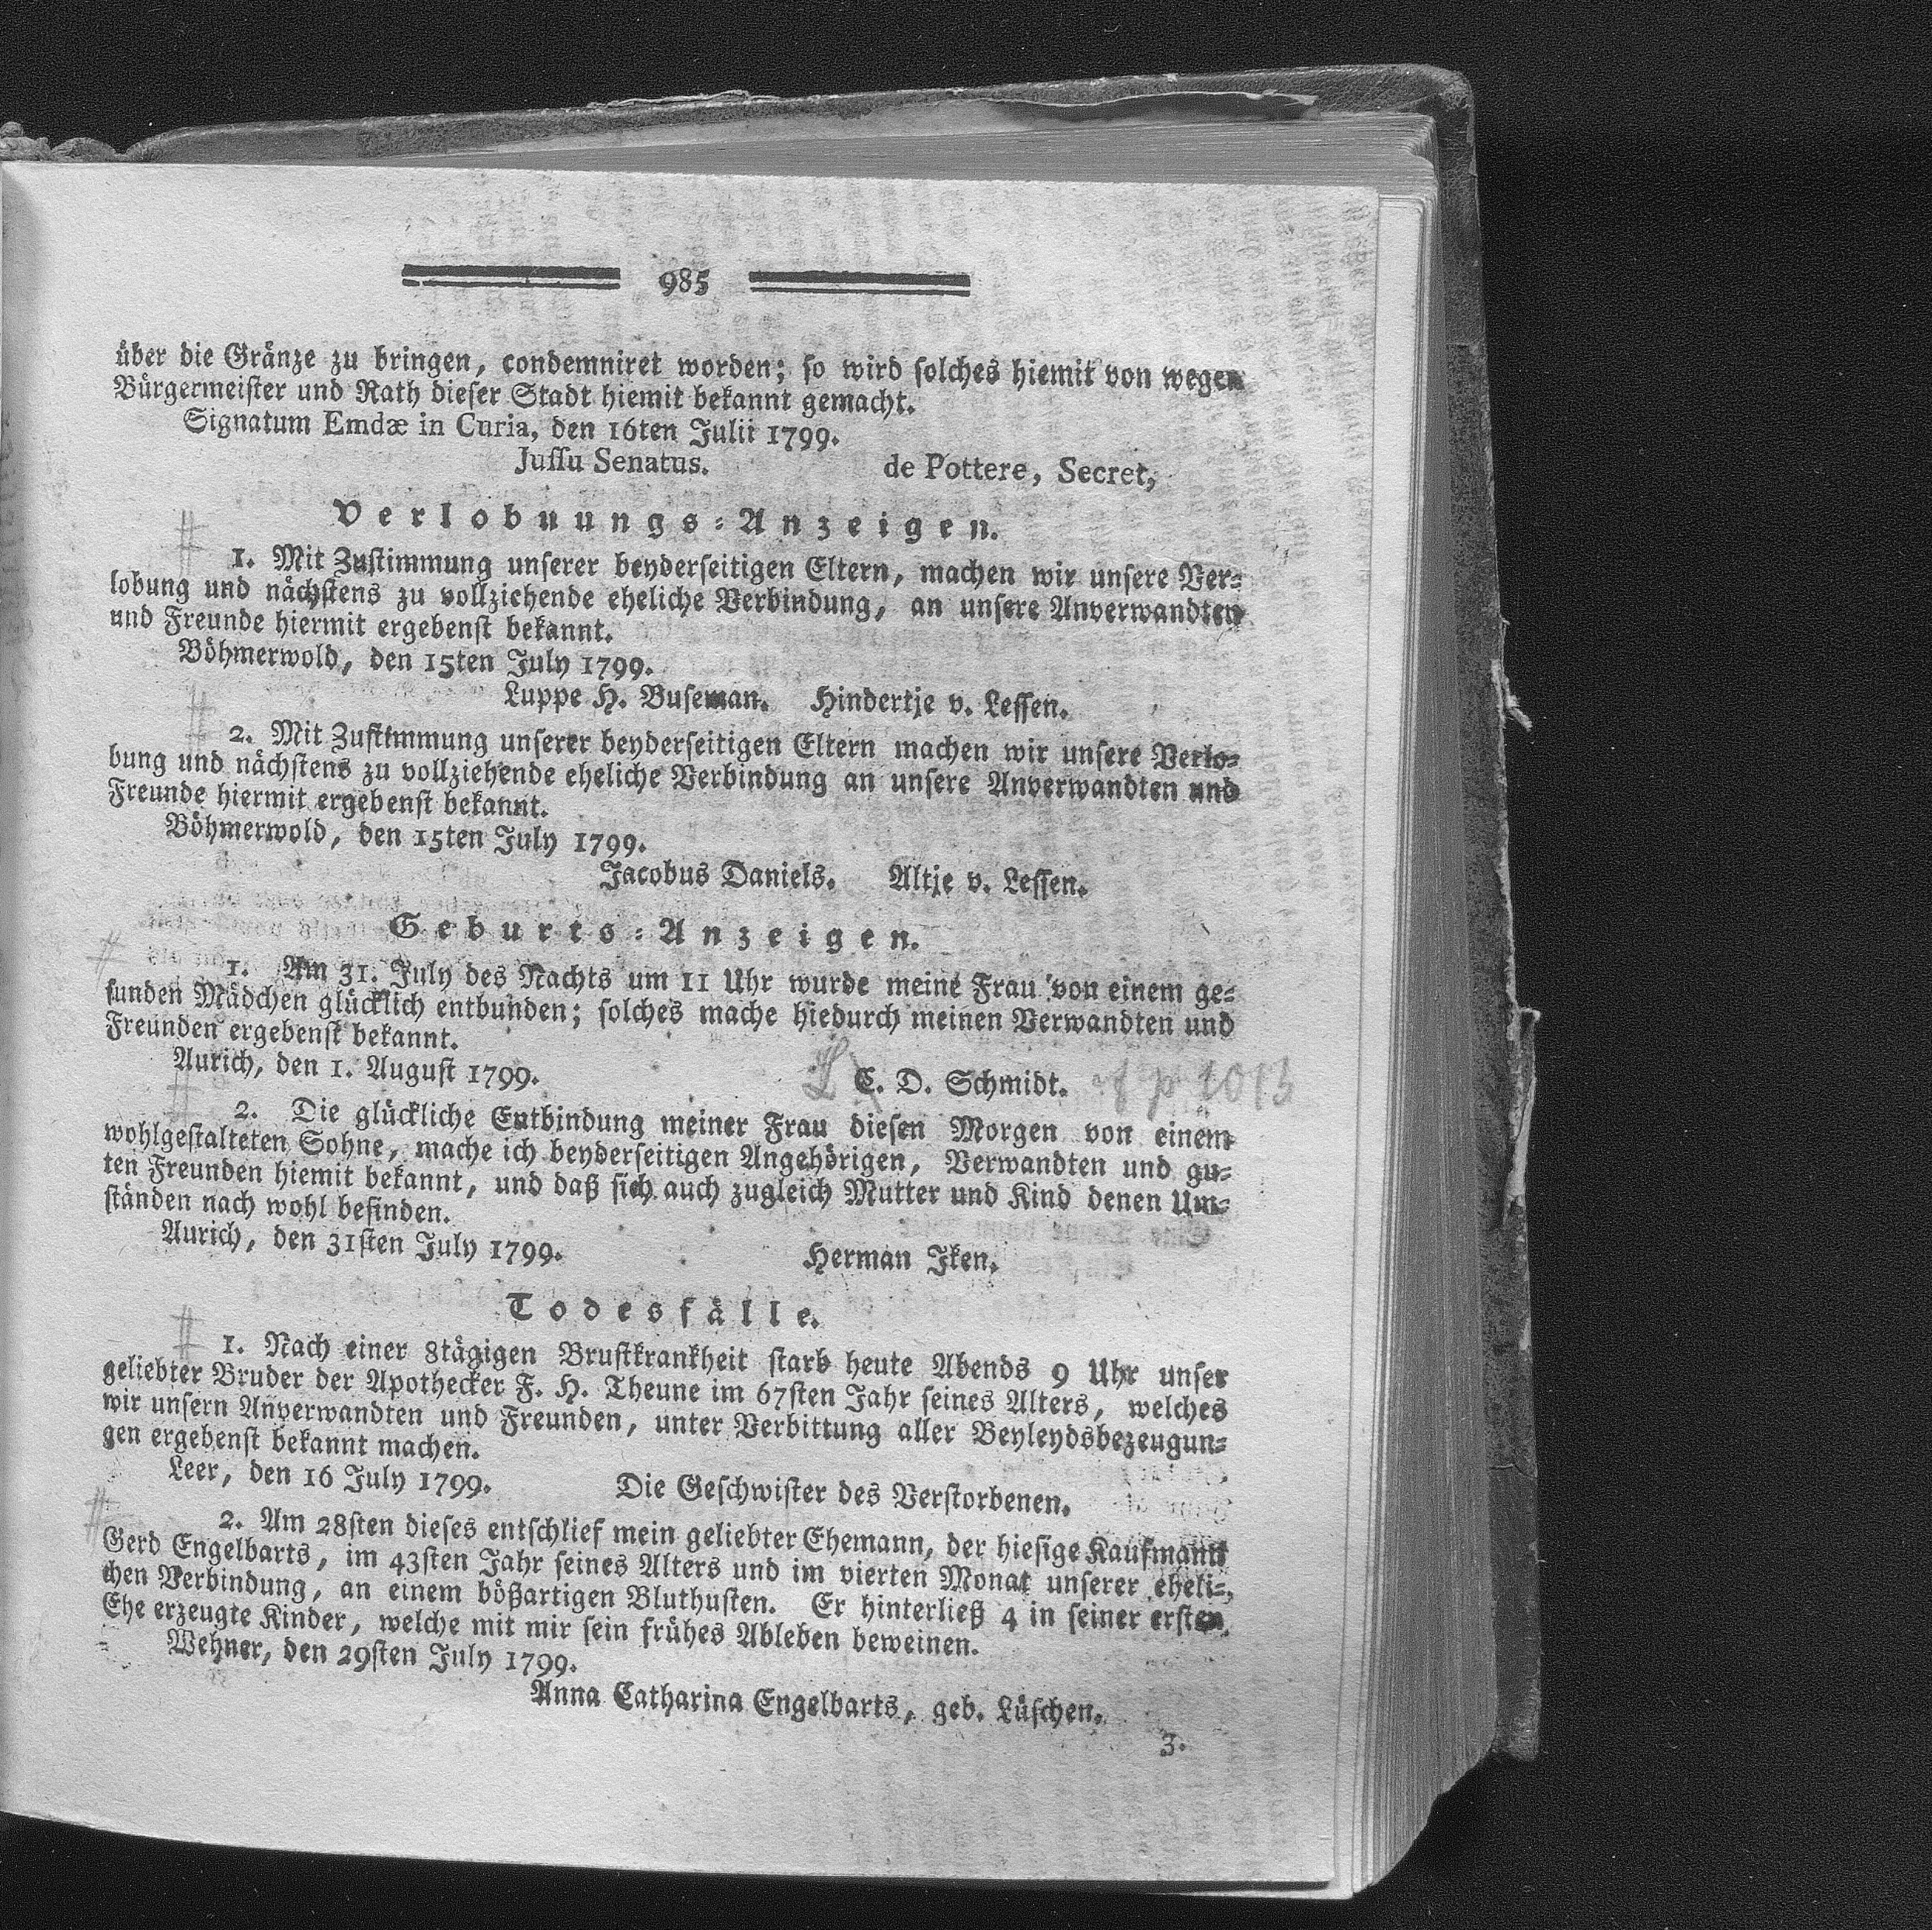 985
über die Gränze zu bringen, condemniret worden; so wird solches hiemit von wegen
Bürgermeister und Rath dieser Stadt hiemit bekannt gemacht.
Signatum Emdæ in Curia, den 16ten Julii 1799.
Jussu Senatus. de Pottere, Secret,
Verlobuungs-Anzeigen.
1. Mit Zustimmung unserer beyderseitigen Eltern, machen wir unsere Ver-
lobung und nächstens zu vollziehende eheliche Verbindung, an unsere Anverwandten
und Freunde hiermit ergebenst bekannt.
Böhmerwold, den 15ten July 1799.
Luppe H. Buseman. Hindertje v. Lessen.
2. Mit Zustimmung unserer beyderseitigen Eltern machen wir unsere Verlo-
bung und nächstens zu vollziehende eheliche Verbindung an unsere Anverwandten und
Freunde hiermit ergebenst bekannt.
Böhmerwold, den 15ten July 1799.
Jacobus Daniels. Altje v. Lessen.
Geburts-Anzeigen.
1. Am 31. July des Nachts um 11 Uhr wurde meine Frau von einem ge-
sunden Mädchen glücklich entbunden; solches mache hiedurch meinen Verwandten und
Freunden ergebenst bekannt.
Aurich, den 1. August 1799. C. D. Schmidt. cf p 1013
2. Die glückliche Entbindung meiner Frau diesen Morgen von einem
wohlgestalteten Sohne, mache ich beyderseitigen Angehörigen, Verwandten und gu-
ten Freunden hiemit bekannt, und daß sich auch zugleich Mutter und Kind denen Um-
ständen nach wohl befinden.
Aurich, den 31sten July 1799. Herman Iken.
Todesfälle.
1. Nach einer 8tägigen Brustkrankheit starb heute Abends 9 Uhr unser
geliebter Bruder der Apothecker F. H. Theune im 67sten Jahr seines Alters, welches
wir unsern Anverwandten und Freunden, unter Verbittung aller Beyleydsbezeugun-
gen ergebenst bekannt machen.
Leer, den 16 July 1799. Die Geschwister des Verstorbenen.
2. Am 28sten dieses entschlief mein geliebter Ehemann, der hiesige Kaufmann
Gerd Engelbarts, im 43sten Jahr seines Alters und im vierten Monat unserer eheli-
chen Verbindung, an einem bößartigen Bluthusten. Er hinterließ 4 in seiner ersten
Ehe erzeugte Kinder, welche mit mir sein frühes Ableben beweinen.
Wehner, den 29sten July 1799.
Anna Catharina Engelbarts, geb. Lüschen.
3.